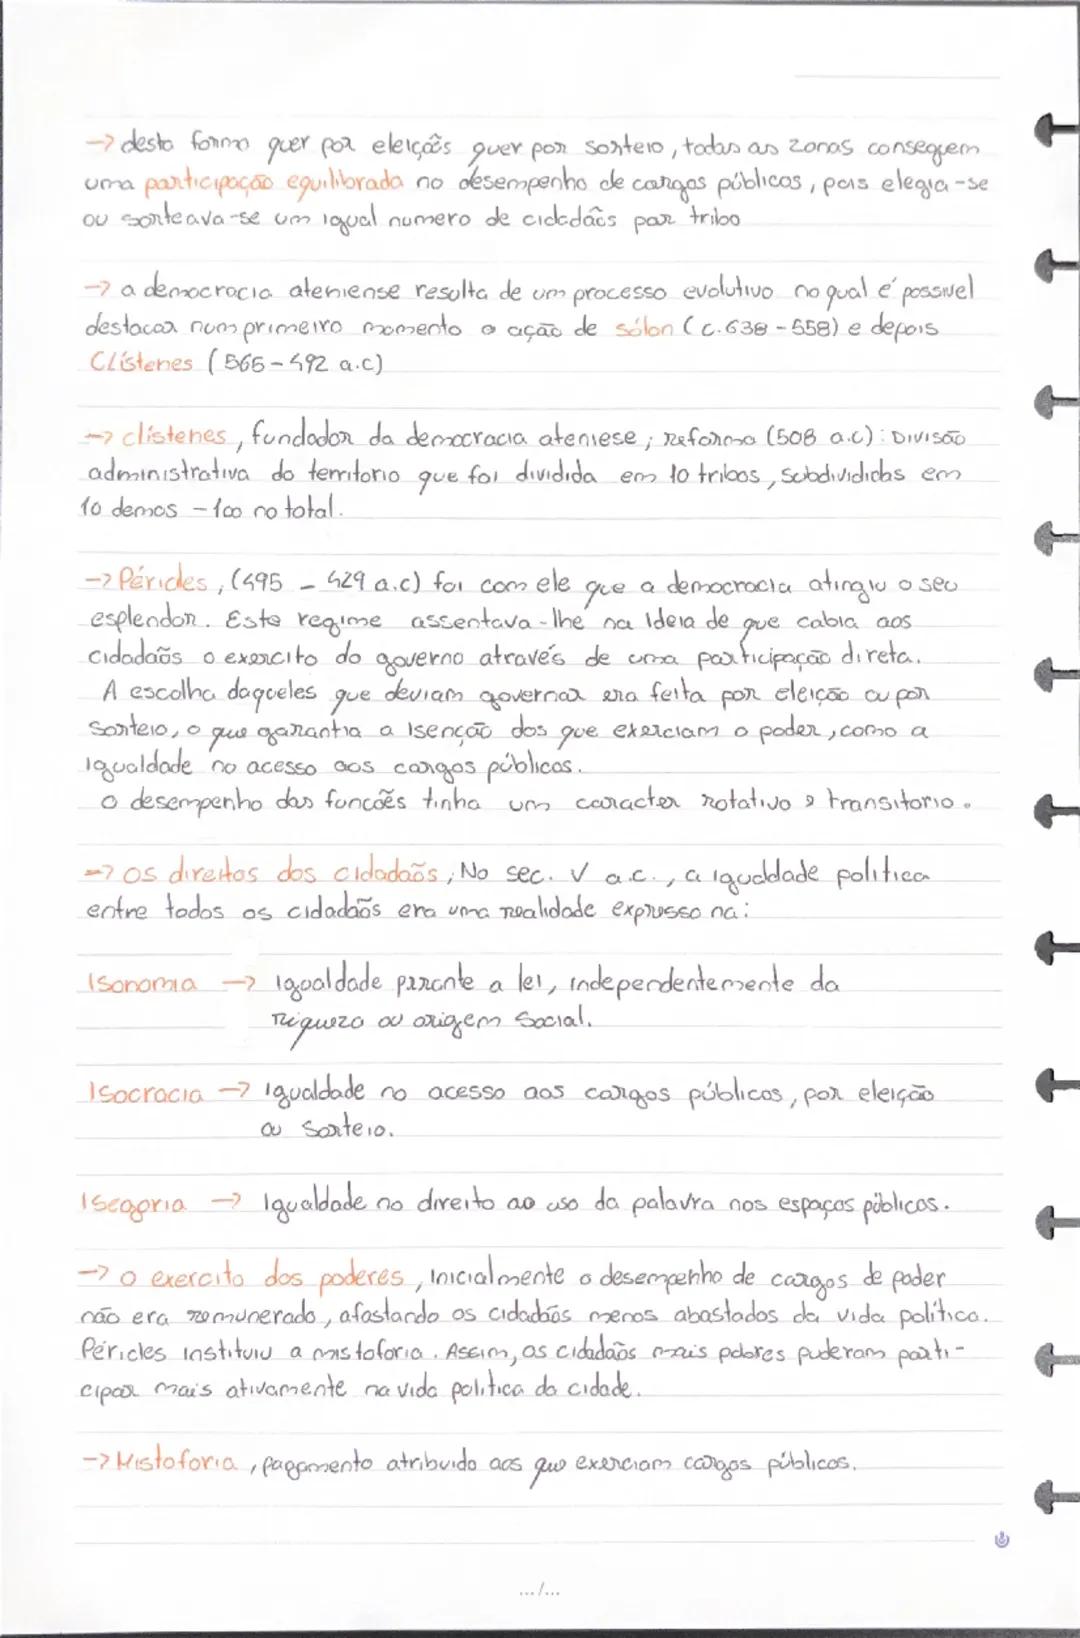 → desta forma quer por eleições quer por sorteio, todas as zonas conseguem
uma participação equilibrada no desempenho de cargos públicos, pois elegia-se
ou sorteava-se um igual numero de cidadãos por tribo
→ a democracia ateniense resulta de um processo evolutivo no qual é possivel
destacar num primeiro momento a ação de sólon (c.638 - 558) e depois
Clístenes (565-492 a.c)
→ clístenes, fundador da democracia ateniese; reforma (508 a.c): Divisão
administrativa do territorio que foi dividida em 10 tribos, subdivididas em
10 demos - 100 no total.
→ Péricles, (495 - 429 a.c) foi com ele que a democracia atingiu o seu
esplendor. Este regime assentava-lhe na ideia de que cabia aos
cidadaõs o exercito do governo através de uma participação direta.
A escolha daqueles que deviam governar era feita por eleição ou por
sorteio, o que garantia a isenção dos que exerciam o poder, como a
igualdade no acesso aos cargos públicos.
o desempenho das funcões tinha um caracter rotativo e transitorio.
→ os direitos dos cidadaõs; No sec. V a.c., a igualdade politica
entre todos os cidadaõs era uma realidade expresso na:
Isonomia → igualdade perante a lei, independentemente da
riqueza ou origem social.
Isocracia → igualdade no acesso aos cargos públicos, por eleição
ou sorteio.
Isegoria → igualdade no direito ao uso da palavra nos espaços públicos.
→ o exercito dos poderes, inicialmente o desempenho de cargos de poder
não era remunerado, afastando os cidadaõs menos abastados da vida política.
Péricles instituiu a mistoforia. Assim, os cidadaõs mais pobres puderam parti-
cipar mais ativamente na vida politica da cidade.
→ Mistoforia, pagamento atribuido aos que exerciam cargos públicos.
.../...